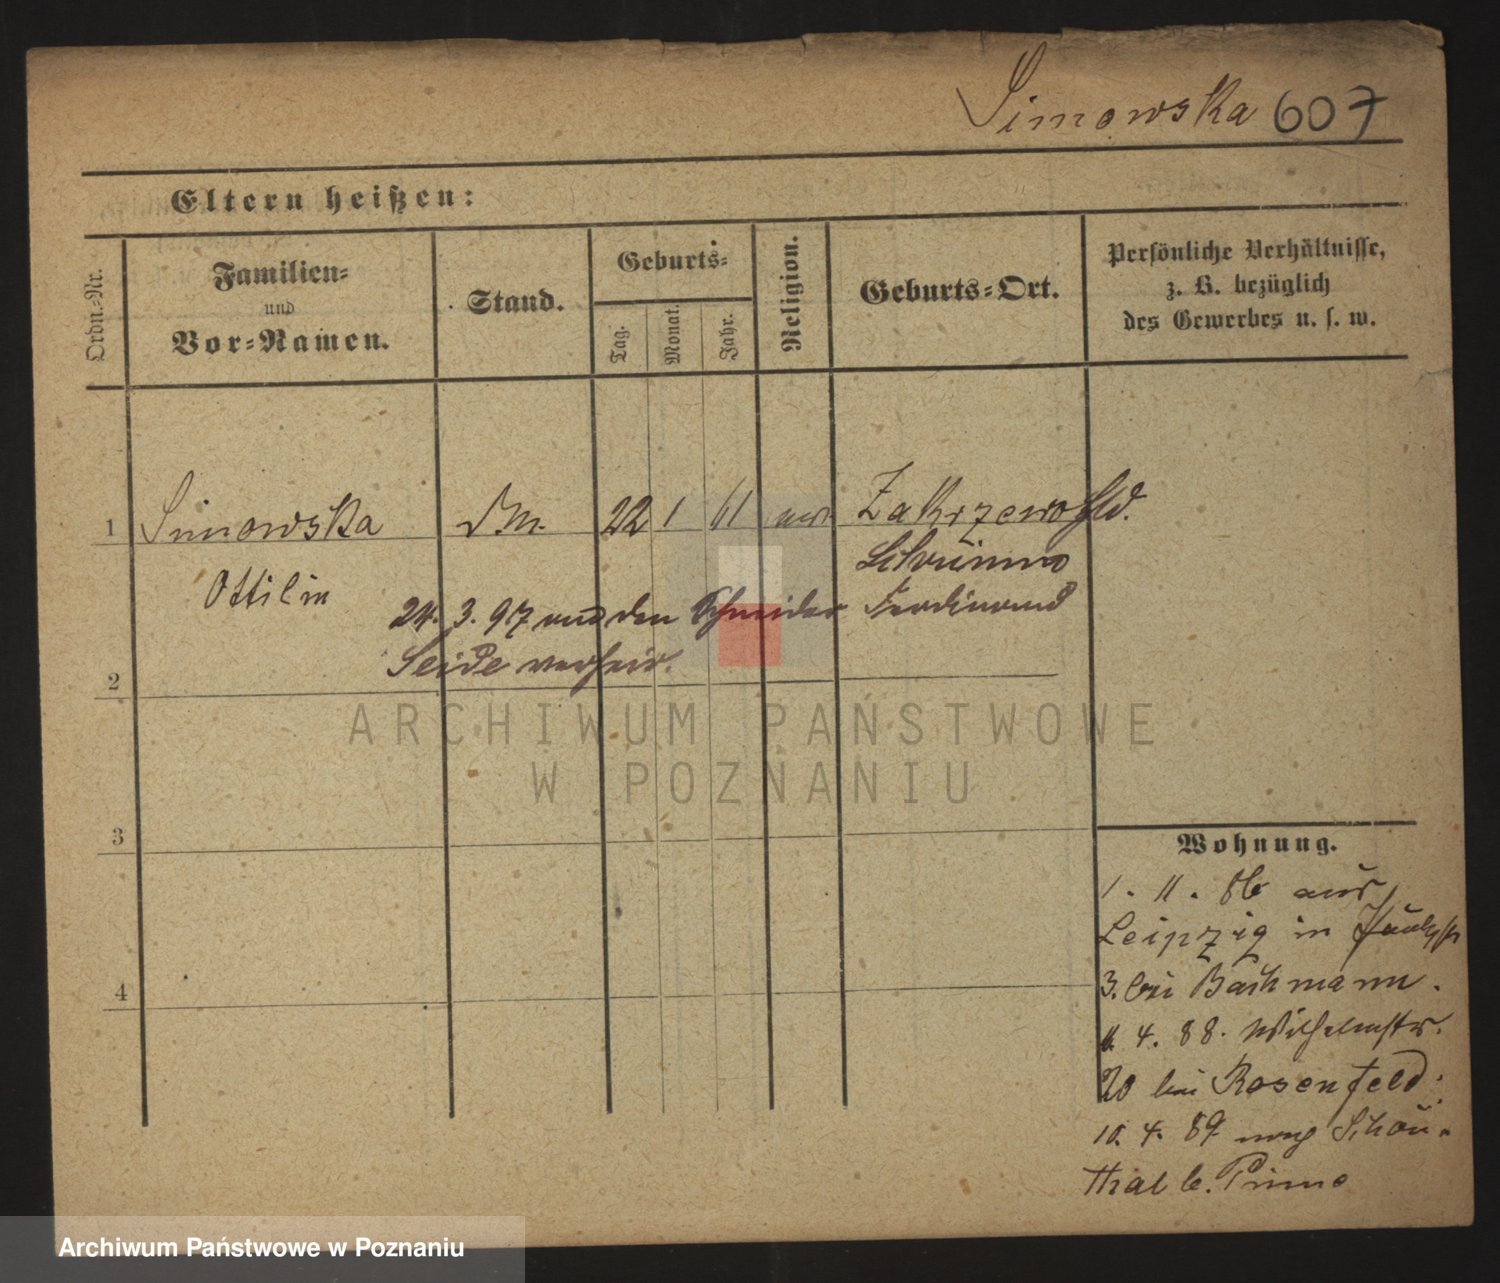 Simowska 607
Eltern heißen:
Ordn.-Nr.
Familien-
und
Vor-Namen.
Stand.
Geburts-
Tag.
Monat.
Jahr.
Religion.
Geburts-Ort.
Persönliche Verhältnisse,
z. B. bezüglich
des Gewerbes u. s. w.
1 Simowska DM. 22 1 61 Zakrzewo Hld.
Ottilie Schrimm
24. 3. 97 den Schneider Ferdinand
Seide verheir.
2
3
4
ARCHIWUM PAŃSTWOWE
W POZNANIU
Wohnung.
1. 11. 86 aus
Leipzig in
3. bei Bachmann.
4. 88. Wilhelmstr.
20 bei Rosenfeld.
10. 4. 89 nach Schön-
thal b. Pinne
Archiwum Państwowe w Poznaniu